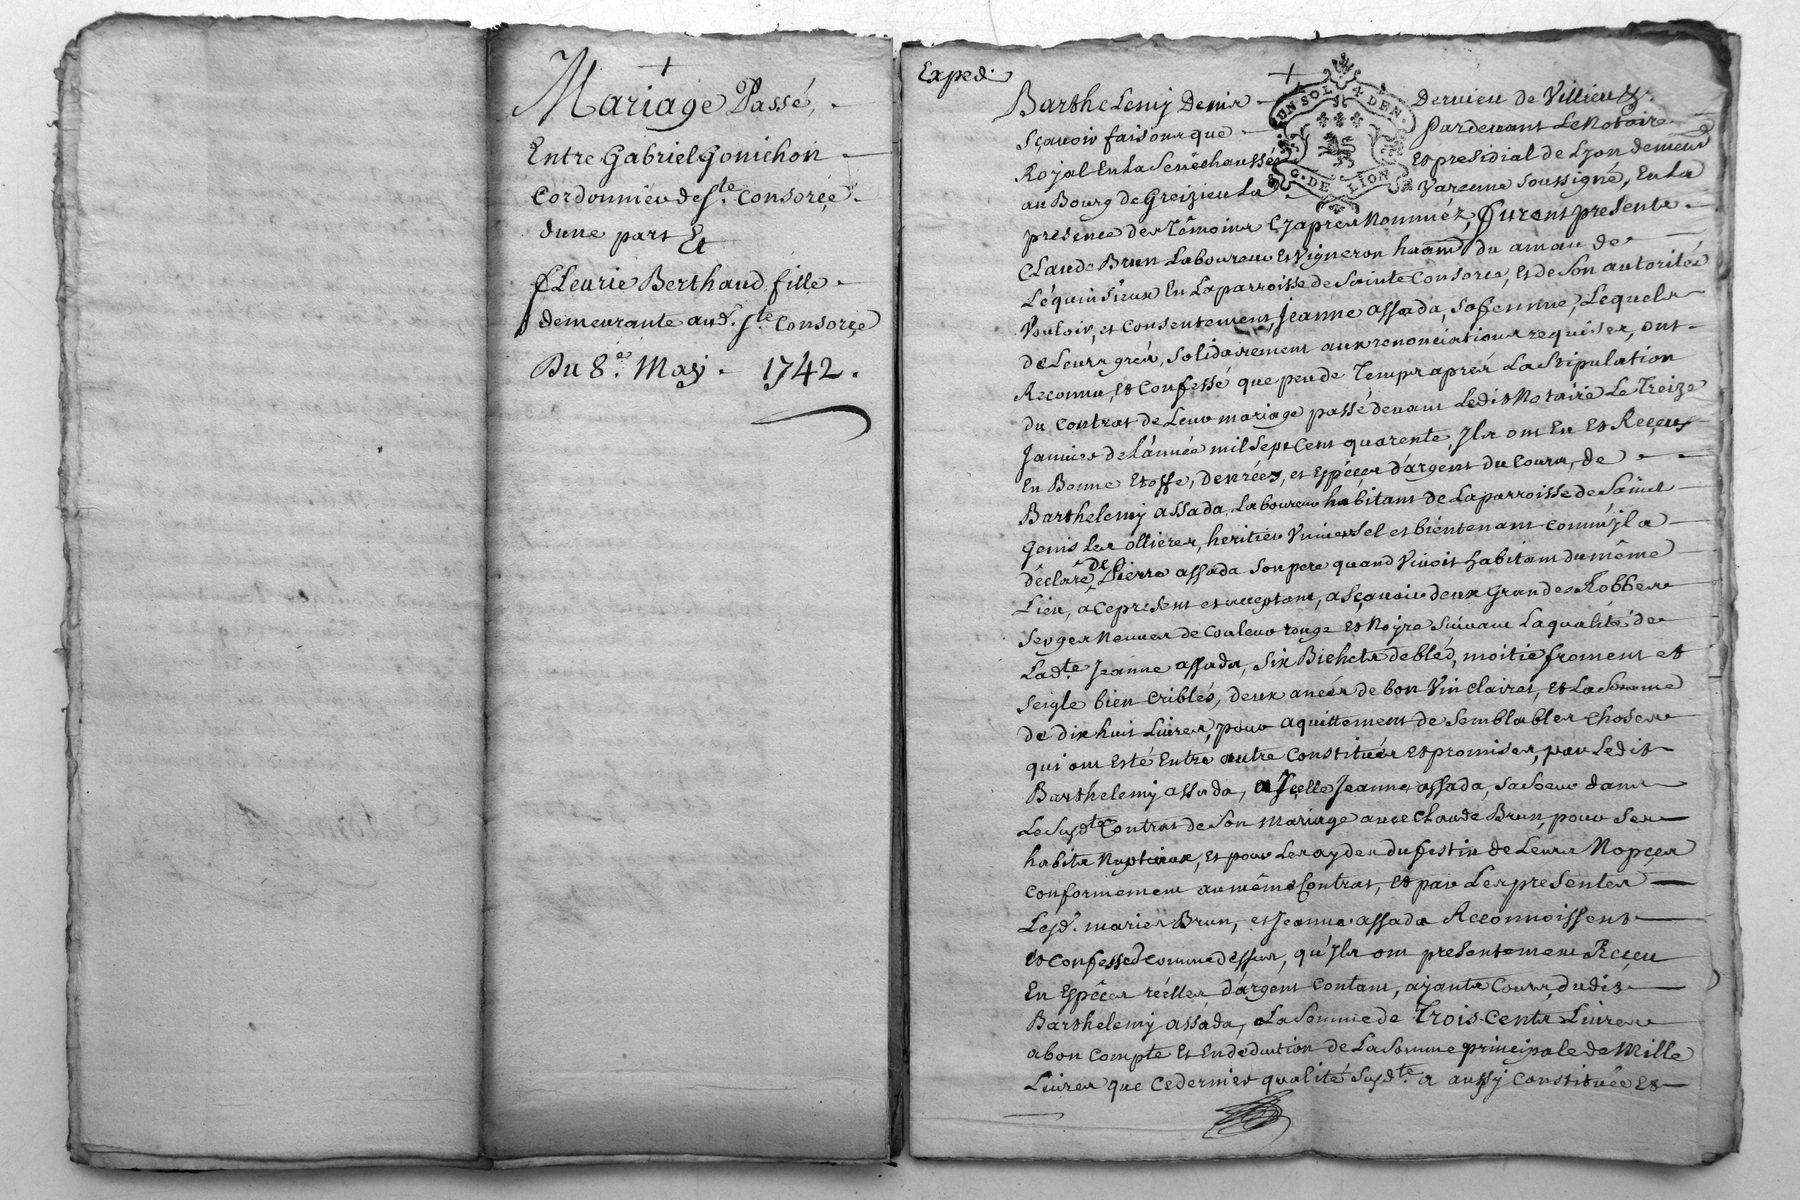 Mariage Passé,
Entre Gabriel Gonichon
Cordonnier de Ste. Consorce
d'une part Et
fleurie Berthaud fille
demeurante aud. Ste Consorce
Du 8e. May 1742.
Exped.
Barthelemy Denis Dervieu de Villieu
Sçavoir faisons que Pardevant Le Notaire
Royal En La Senéchaussée Et presidial de Lyon demeur
au Bourg de Greizieu La Varenne Soussigné, En La
presence des Témoins Cyapres Nommez, furent presents
Claude Brun Laboureur Et Vigneron du amau de
Léquinsieux En La parroisse de Sainte Consorce, Et de Son autorité
Vouloir, et Consentement, Jeanne assada, Sa femme, Lequels
de Leurs grés, Solidairement aux renonciations requises, ont
Reconnu, et Confessé que peu de Temps aprés La Stipulation
du Contrat de Leur mariage passé devant Ledit Notaire Le Treize
Janvier de L'année mil Sept Cent quarente, Ils ont Eu Et Reçeus
En Bonne Etoffe, denrées, et Espéces d'argent du Cours, de
Barthelemy assada, Laboureur habitant de La parroisse de Saint
Genis Les ollieres, heritier Universel et bientenant comm'jl a
déclaré de Pierre assada Son pere quand Vivoit habitant du même
Lieu, à Ce present et acceptant, a Sçavoir deux grandes Robbes
Serges Neuves de Couleur rouge Et Noyre Suivant La qualité de
Lad.te Jeanne assada, Six Bichets de bléd, moitié froment et
Seigle bien Criblés, deux anées de bon Vin Clairet, Et La Somme
de dix huit Livres, pour aquittement de Semblables Choses
qui ont Esté Entre autre Constituées Et promises, par Ledit
Barthelemy assada, a Jcelle Jeanne assada, Sa Soeur dans
Le Susdte Contrat de Son mariage avec Claude Brun, pour Ses
habits Nuptiaux, Et pour Les ayder du festin de Leurs Nopces
Conformement au même Contrat, Et par Les presentes
Lesd. mariés Brun, et Jeanne assada Reconnoissent
et Confessed Comme dessus, qu'Ils ont presentement Reçeu
En Espéces réelles d'argent Contant, ayants Cours, dudit
Barthelemy assada, La Somme de Trois Cents Livres
a bon Compte Et En deduction de La Somme principale de Mille
Livres que Ce dernier qualité Susd.te a aussy Constituée Et
UN SOL 4 DEN.
G. DE LION